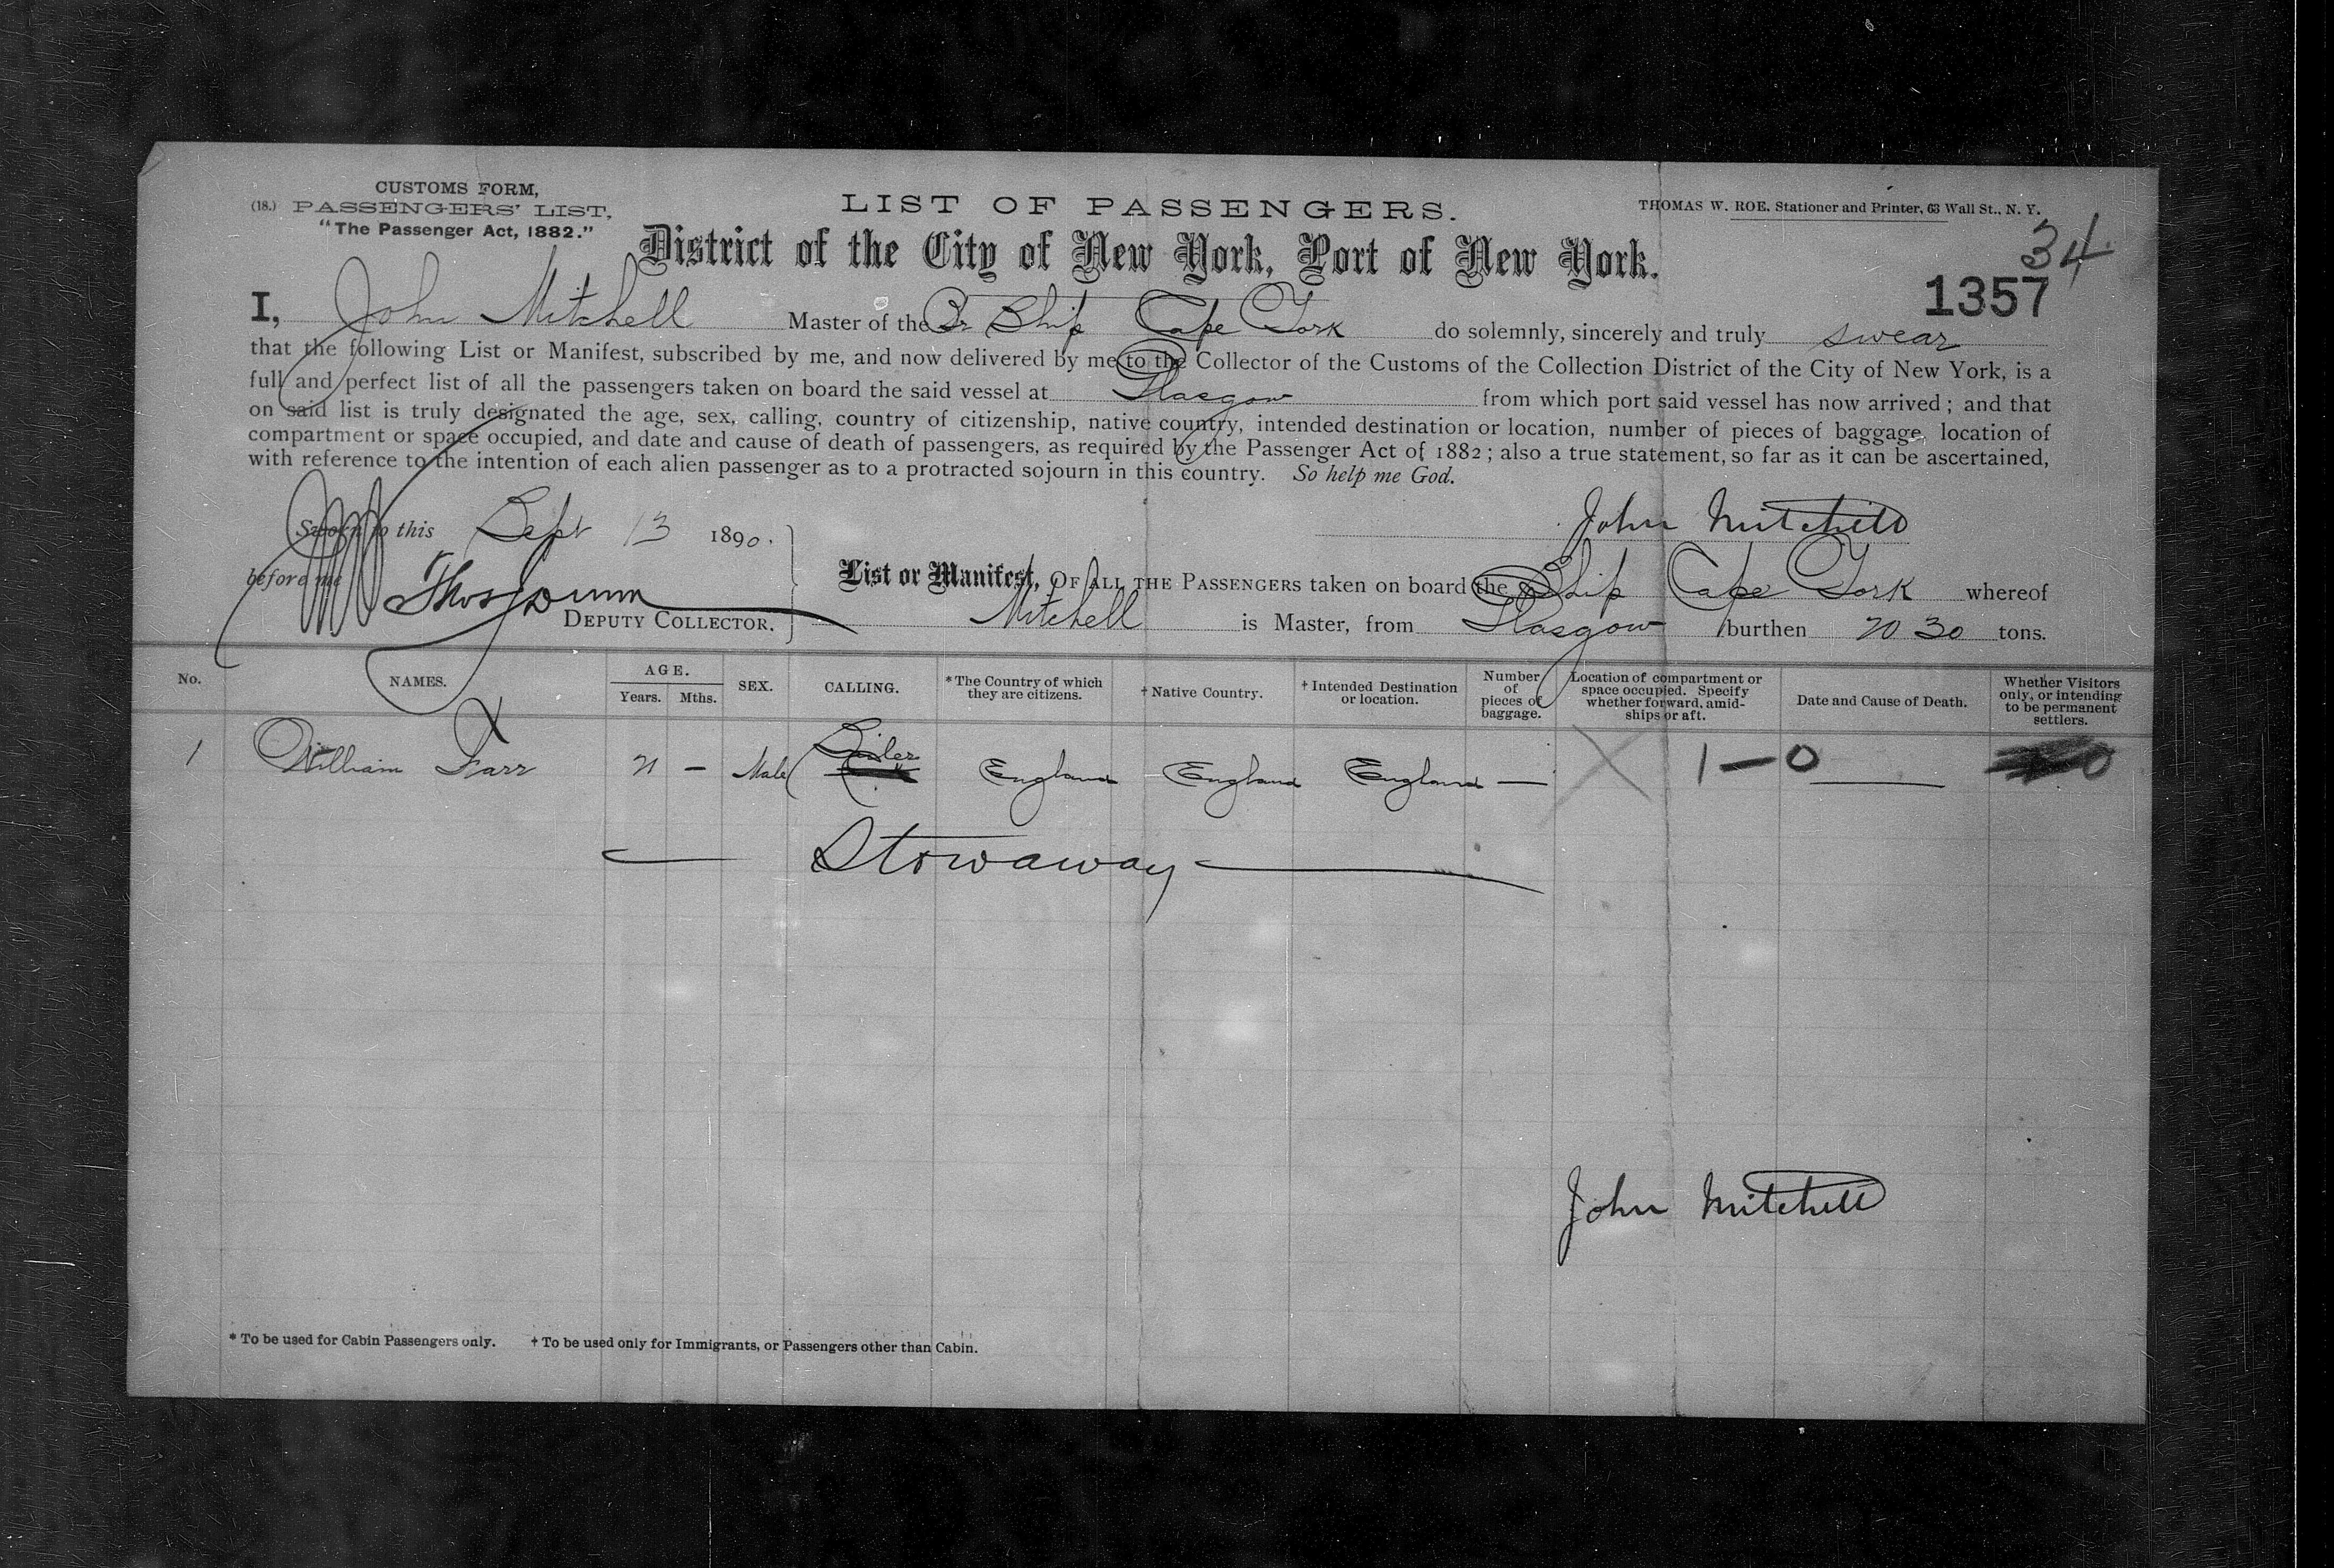 CUSTOMS FORM,
(18.) PASSENGERS' LIST,
"The Passenger Act, 1882."
LIST OF PASSENGERS.
THOMAS W. ROE, Stationer and Printer, 63 Wall St., N. Y.
District of the City of New York, Port of New York.
34
1357
I, John Mitchell Master of the Br Ship Cape York do solemnly, sincerely and truly swear
that the following List or Manifest, subscribed by me, and now delivered by me to the Collector of the Customs of the Collection District of the City of New York, is a
full and perfect list of all the passengers taken on board the said vessel at Glasgow from which port said vessel has now arrived; and that
on said list is truly designated the age, sex, calling, country of citizenship, native country, intended destination or location, number of pieces of baggage, location of
compartment or space occupied, and date and cause of death of passengers, as required by the Passenger Act of 1882; also a true statement, so far as it can be ascertained,
with reference to the intention of each alien passenger as to a protracted sojourn in this country. So help me God.
Sworn to this Sept 13 1890.
John Mitchell
before me Thos Dunn
DEPUTY COLLECTOR.
List or Manifest, OF ALL THE PASSENGERS taken on board the Ship Cape York whereof
Mitchell is Master, from Glasgow burthen 2030 tons.
No. NAMES. AGE. Years. Mths. SEX. CALLING. *The Country of which they are citizens. †Native Country. †Intended Destination or location. Number of pieces of baggage. Location of compartment or space occupied. Specify whether forward, amidships or aft. Date and Cause of Death. Whether Visitors only, or intending to be permanent settlers.
1 William Farr 21 — Male England England England — X 1—0 — 0
Stowaway
John Mitchell
* To be used for Cabin Passengers only. † To be used only for Immigrants, or Passengers other than Cabin.